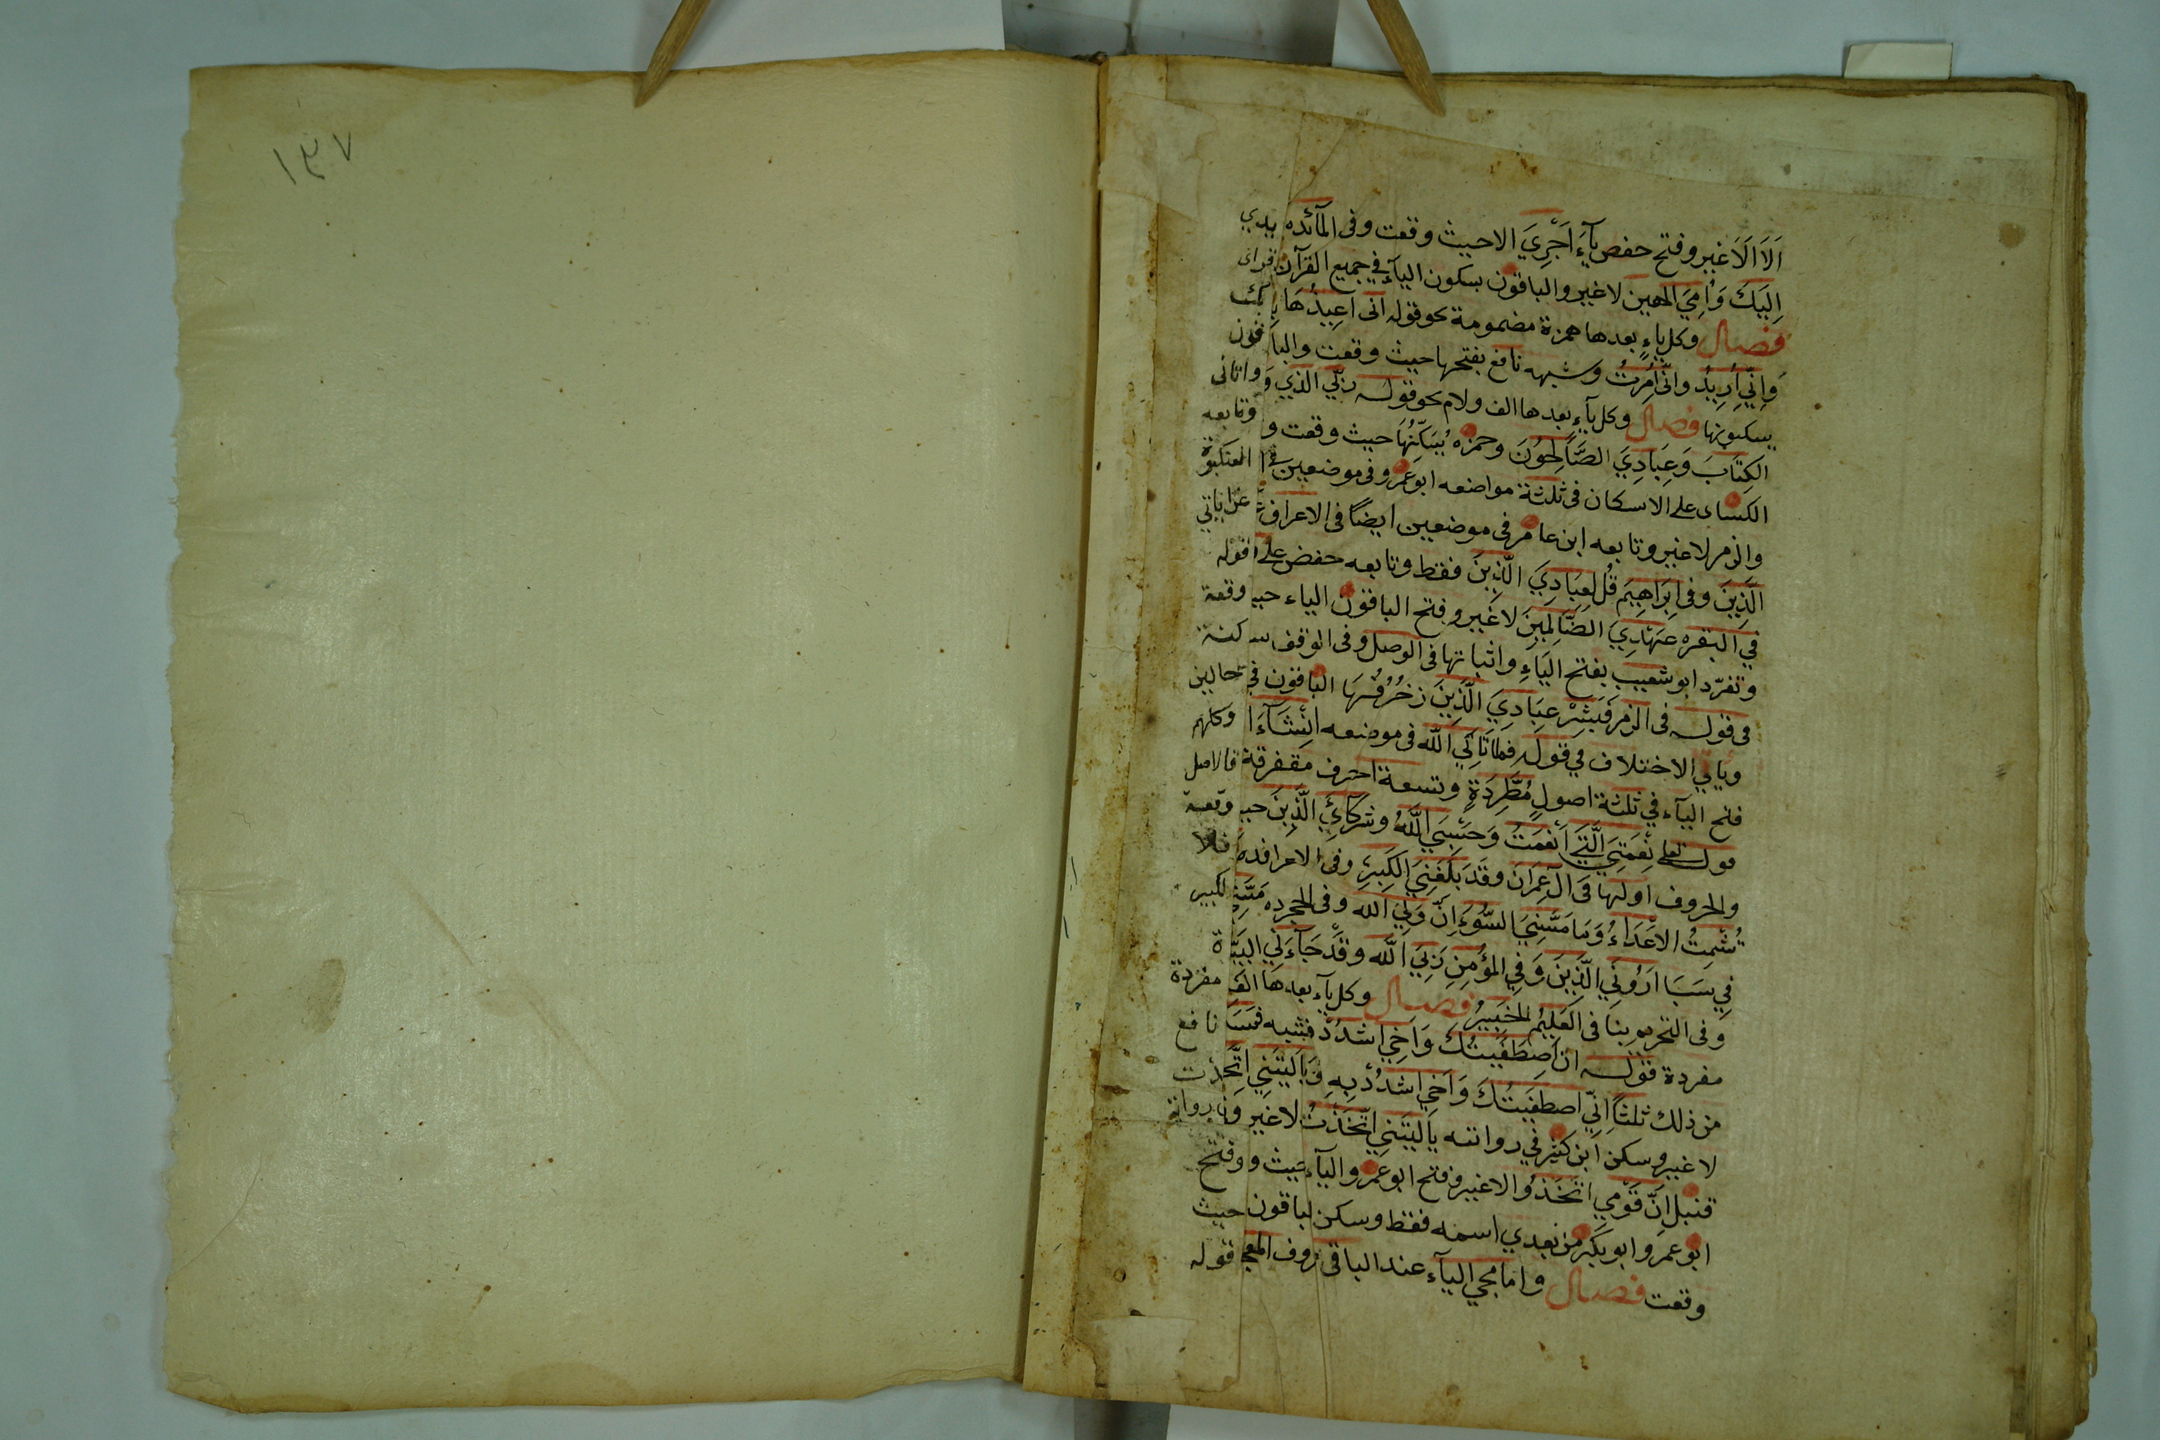 ١٣٧
الا الا غير وفتح حفص يآءَ اَجْرِيَ الا حيث وقعت وفى المآئده يدي
اِلَيكَ وَاُمِيَ الهين لا غير والباقون بسكون اليآء في جميع القرآن
فصل وكل ياءٍ بعدها همزة مضمومة نحو قوله انى اعِيذُهَا بك
وَاِنّي اُرِيدُ وانّي اُمِرْتُ وشبهه نافع بفتحها حيث وقعت والباقون
يسكنونها فصل وكل يآءٍ بعدها الف ولام نحو قوله ربّي الذي واتانى
الكِتَابَ وَعِبَادِيَ الصَّالِحُونَ وحمزه يُسَكّنُهَا حيث وقعت وتابعه
الكساى على الاسكان فى ثلثة مواضعه ابو عمرو فى موضعين
والزمر لا غير وتابعه ابن عامر فى موضعين ايضًا فى الاعراف عن اياتي
الَّذِينَ وفى اِبرَاهِيمَ قُل لِعِبَادِيَ الَّذِينَ فقط وتابعه حفص على قوله
في البقره عَهْدِيَ الظَّالِمِينَ لا غير وفتح الباقون الياء حيث وقعت
وتفرّد ابو شعيب بفتح اليَاءِ واثباتها فى الوصل وفى الوقف ساكنة
فى قوله فى الزمر فَبَشِرْ عِبَادِيَ الَّذِينَ الباقون في حالين
وياتي الاختلاف في قوله فما آتَانِيَ الله فى موضعه اِنْشَآءَ الله وكلهم
فتح اليآء في ثلثة اصولٍ مُطَّرِدَةٍ وتسعة احرف متفرقة فالاصل
قوله تعلى نِعْمَتِيَ الَّتِي اَنْعَمْتُ وَحَسْبِيَ اللَّهُ وشركآئِيَ الَّذِينَ حيث وقعت
والحروف اولها فى ال عِمرَانَ وقَدْ بَلَغَنِيَ الكِبَرُ وفى الاعراف فلا
تُشْمِتْ الاَعْدَاءُ وَمَا مَسَّنِيَ السُّوءُ اِنَّ وَلِيَّ الله وفى الحجر مَسَّنِيَ الكبر
فِي سَبَا اَرُونِيَ الَّذِينَ وَفِي المؤمِنِ رَبِّيَ اللّه وقَدْ جَآءَنِيَ البَيِّنَاة
وفى التحريم نبانى العَلِيْمُ الخبِيْرُ فصل وكل يآء بعدها الف مفردة
مفردة قوله اِن اصطَفَيتُكَ وَاَخِي اشدُدْ فشبيه نافع
من ذلك ثلثًا اِنِّي اصطفَيتُكَ وَاَخِي اشدُدْ بِهِ وَيَالَيتَنِي اتَّخَذت
لا غير وسكن ابن كثير في روايته يالَيتَنِي اتَّخَذْتُ لا غير وفى رواية
قنبل اِنّ قَوْمِي اتَّخَذُوا لا غير وفتح ابو عمرو اليآء حيث وفتح
ابو عمرو ابو بكر من بعدي اسمه فقط وسكن الباقون حيث
وقعت فصل واما مجي اليآء عند الباقى حروف المعجم قوله